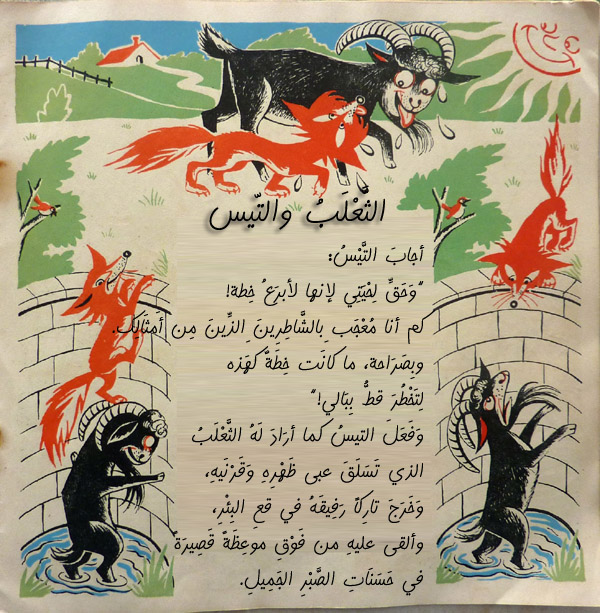 الثَّعْلَبُ والتّيس
أجابَ التَّيْسُ:
"وَحَقِّ لِحْيَتِي لإنها لأبرَعُ خِطة!
كم أنا مُعْجَب بِالشَّاطِرِينَ الذِّينَ مِن أمثالِكَ.
وبِصَراحة، ما كانَت خِطَّةٌ كهَذه
لِتَخْطُرَ قطُّ بِبَالي!"
وَفَعَلَ التيسُ كما أرَادَ لَهُ الثَّعْلَبُ
الذي تَسَلَقَ عبى ظَهْرِهِ وَقَرْنَيهِ،
وَخَرَجَ تارِكاً رَفِيقَهُ في قعِ البِئْرِ،
وألقى عليهِ من فَوْقِ موعِظَةً قَصِيرَةً
في حَسَنَاتِ الصَّبْرِ الجَمِيلِ.